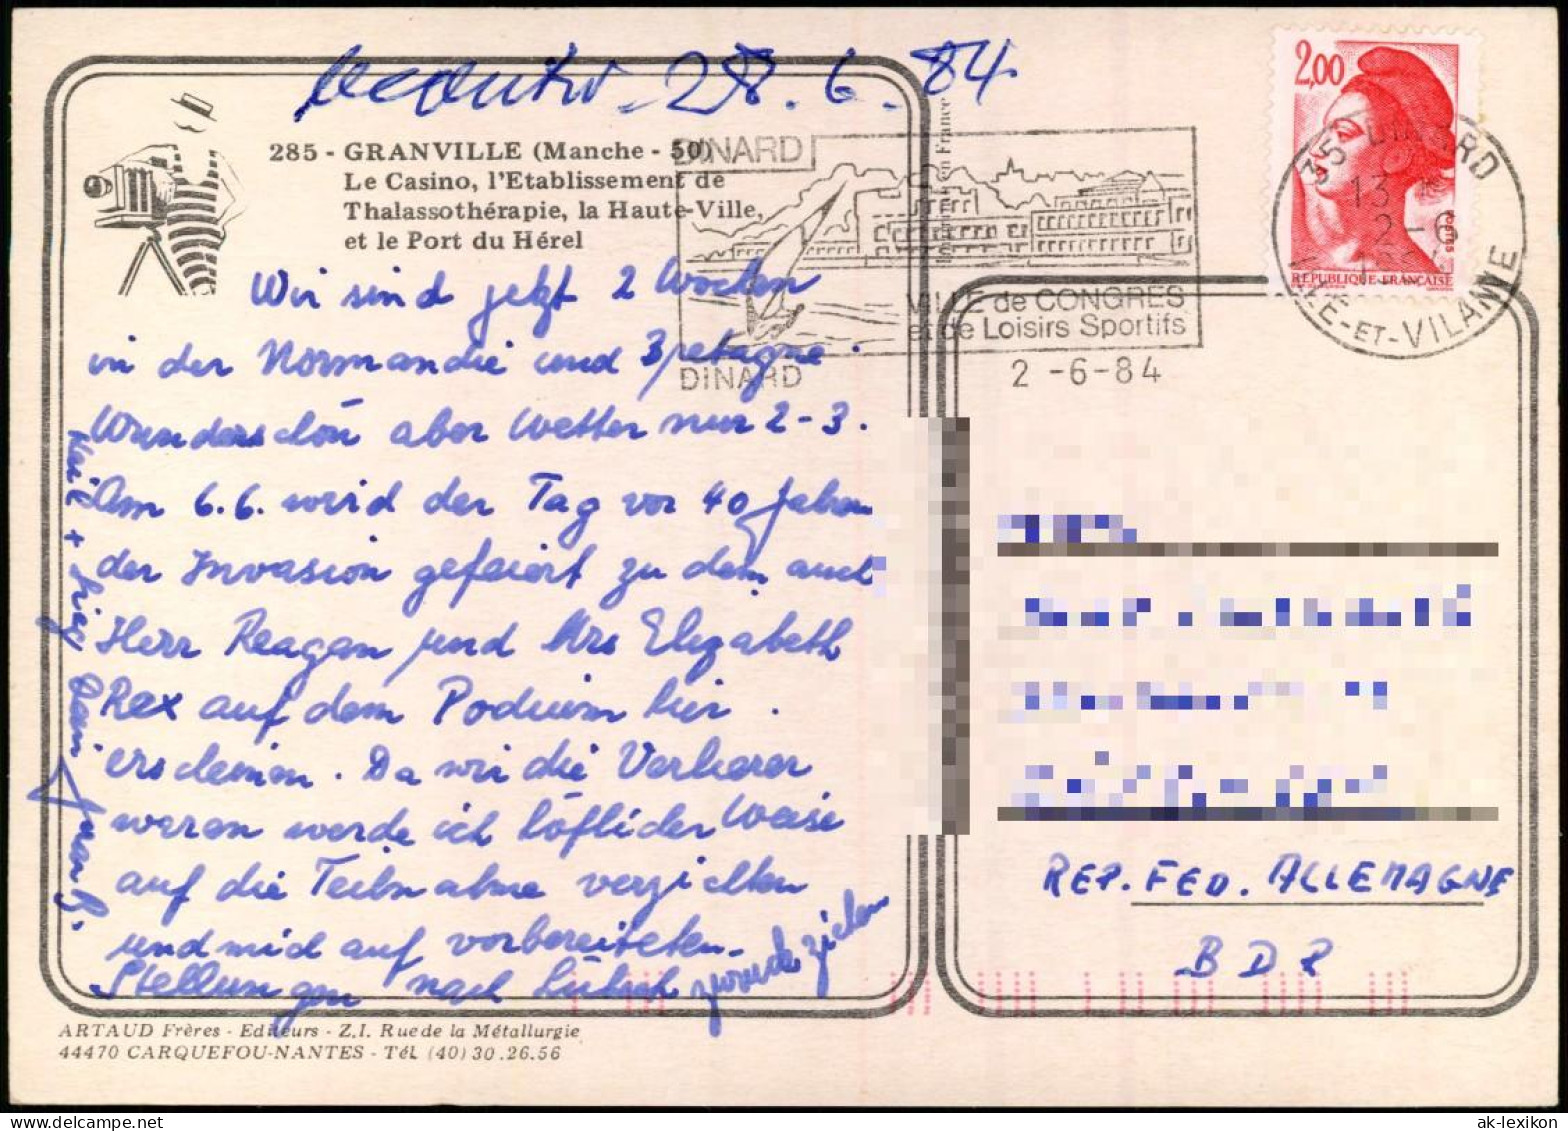 28.6.84
285 - GRANVILLE (Manche - 50)
Le Casino, l'Etablissement de
Thalassothérapie, la Haute-Ville,
et le Port du Hérel
Wir sind jetzt 2 Wochen
in der Normandie und Bretagne.
Wunderschön aber Wetter nur 2-3.
Am 6.6. wird der Tag vor 40 Jahren
der Invasion gefeiert zu dem auch
Herr Reagan und Mrs Elizabeth
Rex auf dem Podium hier
erscheinen. Da wir die Verlierer
waren werde ich höflicher Weise
auf die Teilnahme verzichten
und mich auf vorbereiteten
Stellungen nach Lübeck zurückziehen
ARTAUD Frères - Editeurs - Z.I. Rue de la Métallurgie
44470 CARQUEFOU-NANTES - Tél. (40) 30.26.56
DINARD
VILLE de CONGRES
et de Loisirs Sportifs
DINARD
2 -6-84
2,00
POSTES
REPUBLIQUE FRANÇAISE
35 DINARD
13
2-6
ILLE-ET-VILAINE
REP. FED. ALLEMAGNE
BDR
ak-lexikon